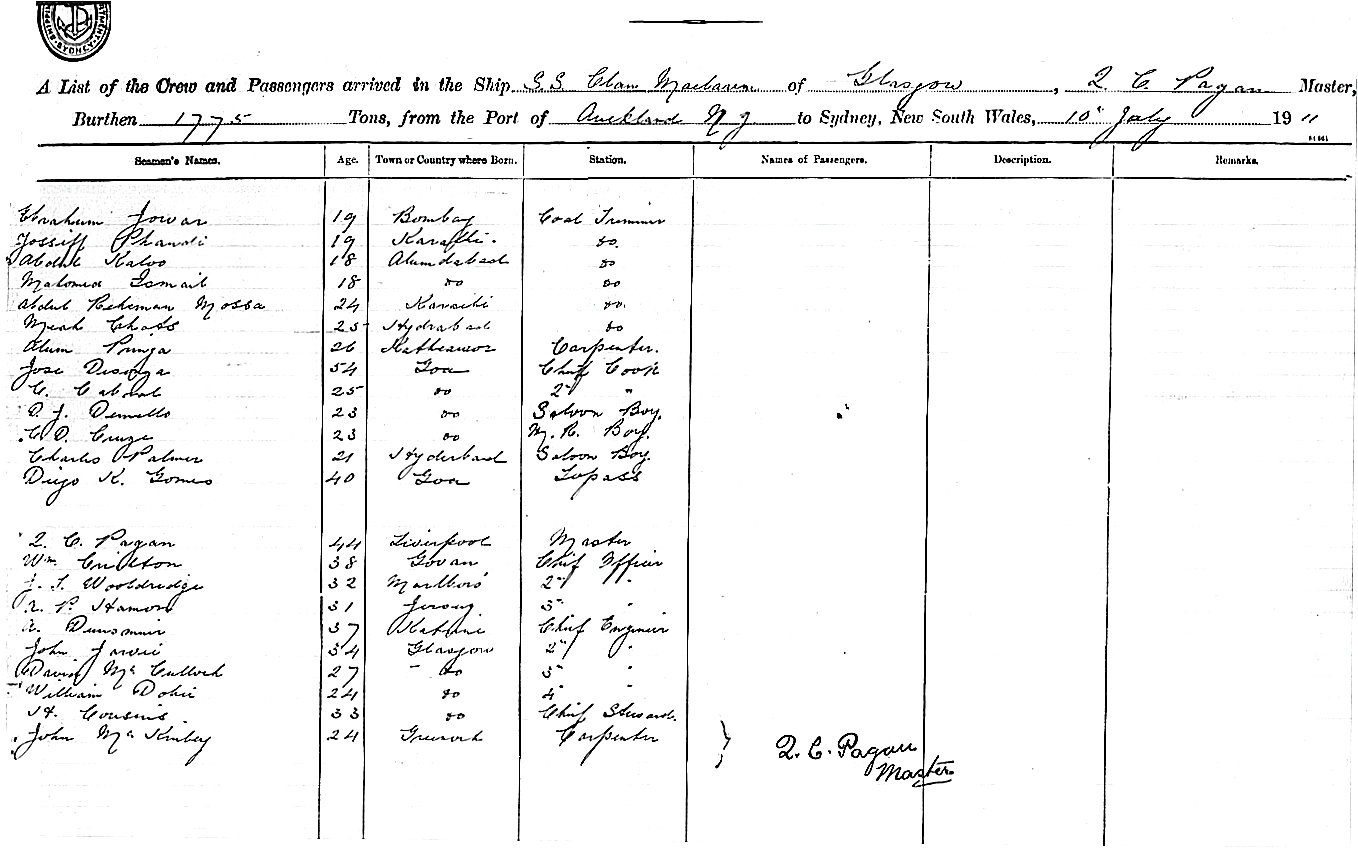 SHIPPING SYDNEY
A List of the Crew and Passengers arrived in the Ship S.S. Clan Maclaren of Glasgow, Q C Pagan Master,
Burthen 1775 Tons, from the Port of Auckland N Z to Sydney, New South Wales, 10th July 1911
Seamen's Names. Age. Town or Country where Born. Station. Names of Passengers. Description. Remarks.
Ebrahim Jowar 19 Bombay Coal Trimmer
19 do.
Abdul Kaloo 18 do
Mahomed Ismail 18 do do
Abdul Rehman Mossa 24 do.
Meah 25 Hydrabad do
Alum 26 Carpenter.
Jose Desouza 54 Goa Chief Cook
C. Cabral 25 do 2nd "
D. J. Demello 23 do Saloon Boy.
C D. Cruze 23 do M. R. Boy.
Charles Palmer 21 Hyderbad Saloon Boy.
Diego K. Gomes 40 Goa Topass
Q. C. Pagan 44 Liverpool Master
Wm 38 Govan Chief Officer
J. T. Wooldridge 32 Marlboro' 2nd "
P. Hamon 31 Jersey 3rd "
A. Dunsmuir 37 Chief Engineer
John Jarvie 34 Glasgow 2nd "
David McCulloch 27 do 3rd "
William Dobie 24 do 4th "
H. Cousins 33 do Chief Steward.
John 24 Greenock Carpenter
Q. C. Pagan
Master